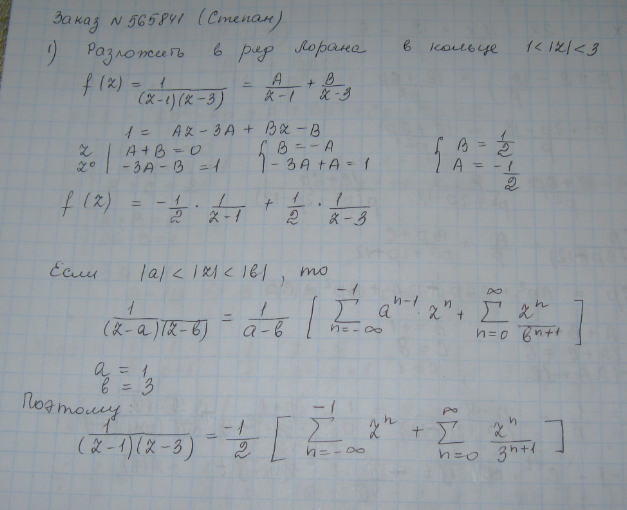 Заказ №565841 (Степан)
1) Разложить в ряд Лорана в кольце 1<|z|<3
f(z) = 1/((z-1)(z-3)) = A/(z-1) + B/(z-3)
1 = Az - 3A + Bz - B
z | A + B = 0 { B = -A { B = 1/2
z⁰ | -3A - B = 1 -3A + A = 1 A = -1/2
f(z) = -1/2 · 1/(z-1) + 1/2 · 1/(z-3)
Если |a| < |z| < |b|, то
1/((z-a)(z-b)) = 1/(a-b) [ ∑_{n=-∞}^{-1} a^{n-1} · z^n + ∑_{n=0}^{∞} z^n/b^{n+1} ]
a = 1
b = 3
Поэтому:
1/((z-1)(z-3)) = -1/2 [ ∑_{n=-∞}^{-1} z^n + ∑_{n=0}^{∞} z^n/3^{n+1} ]